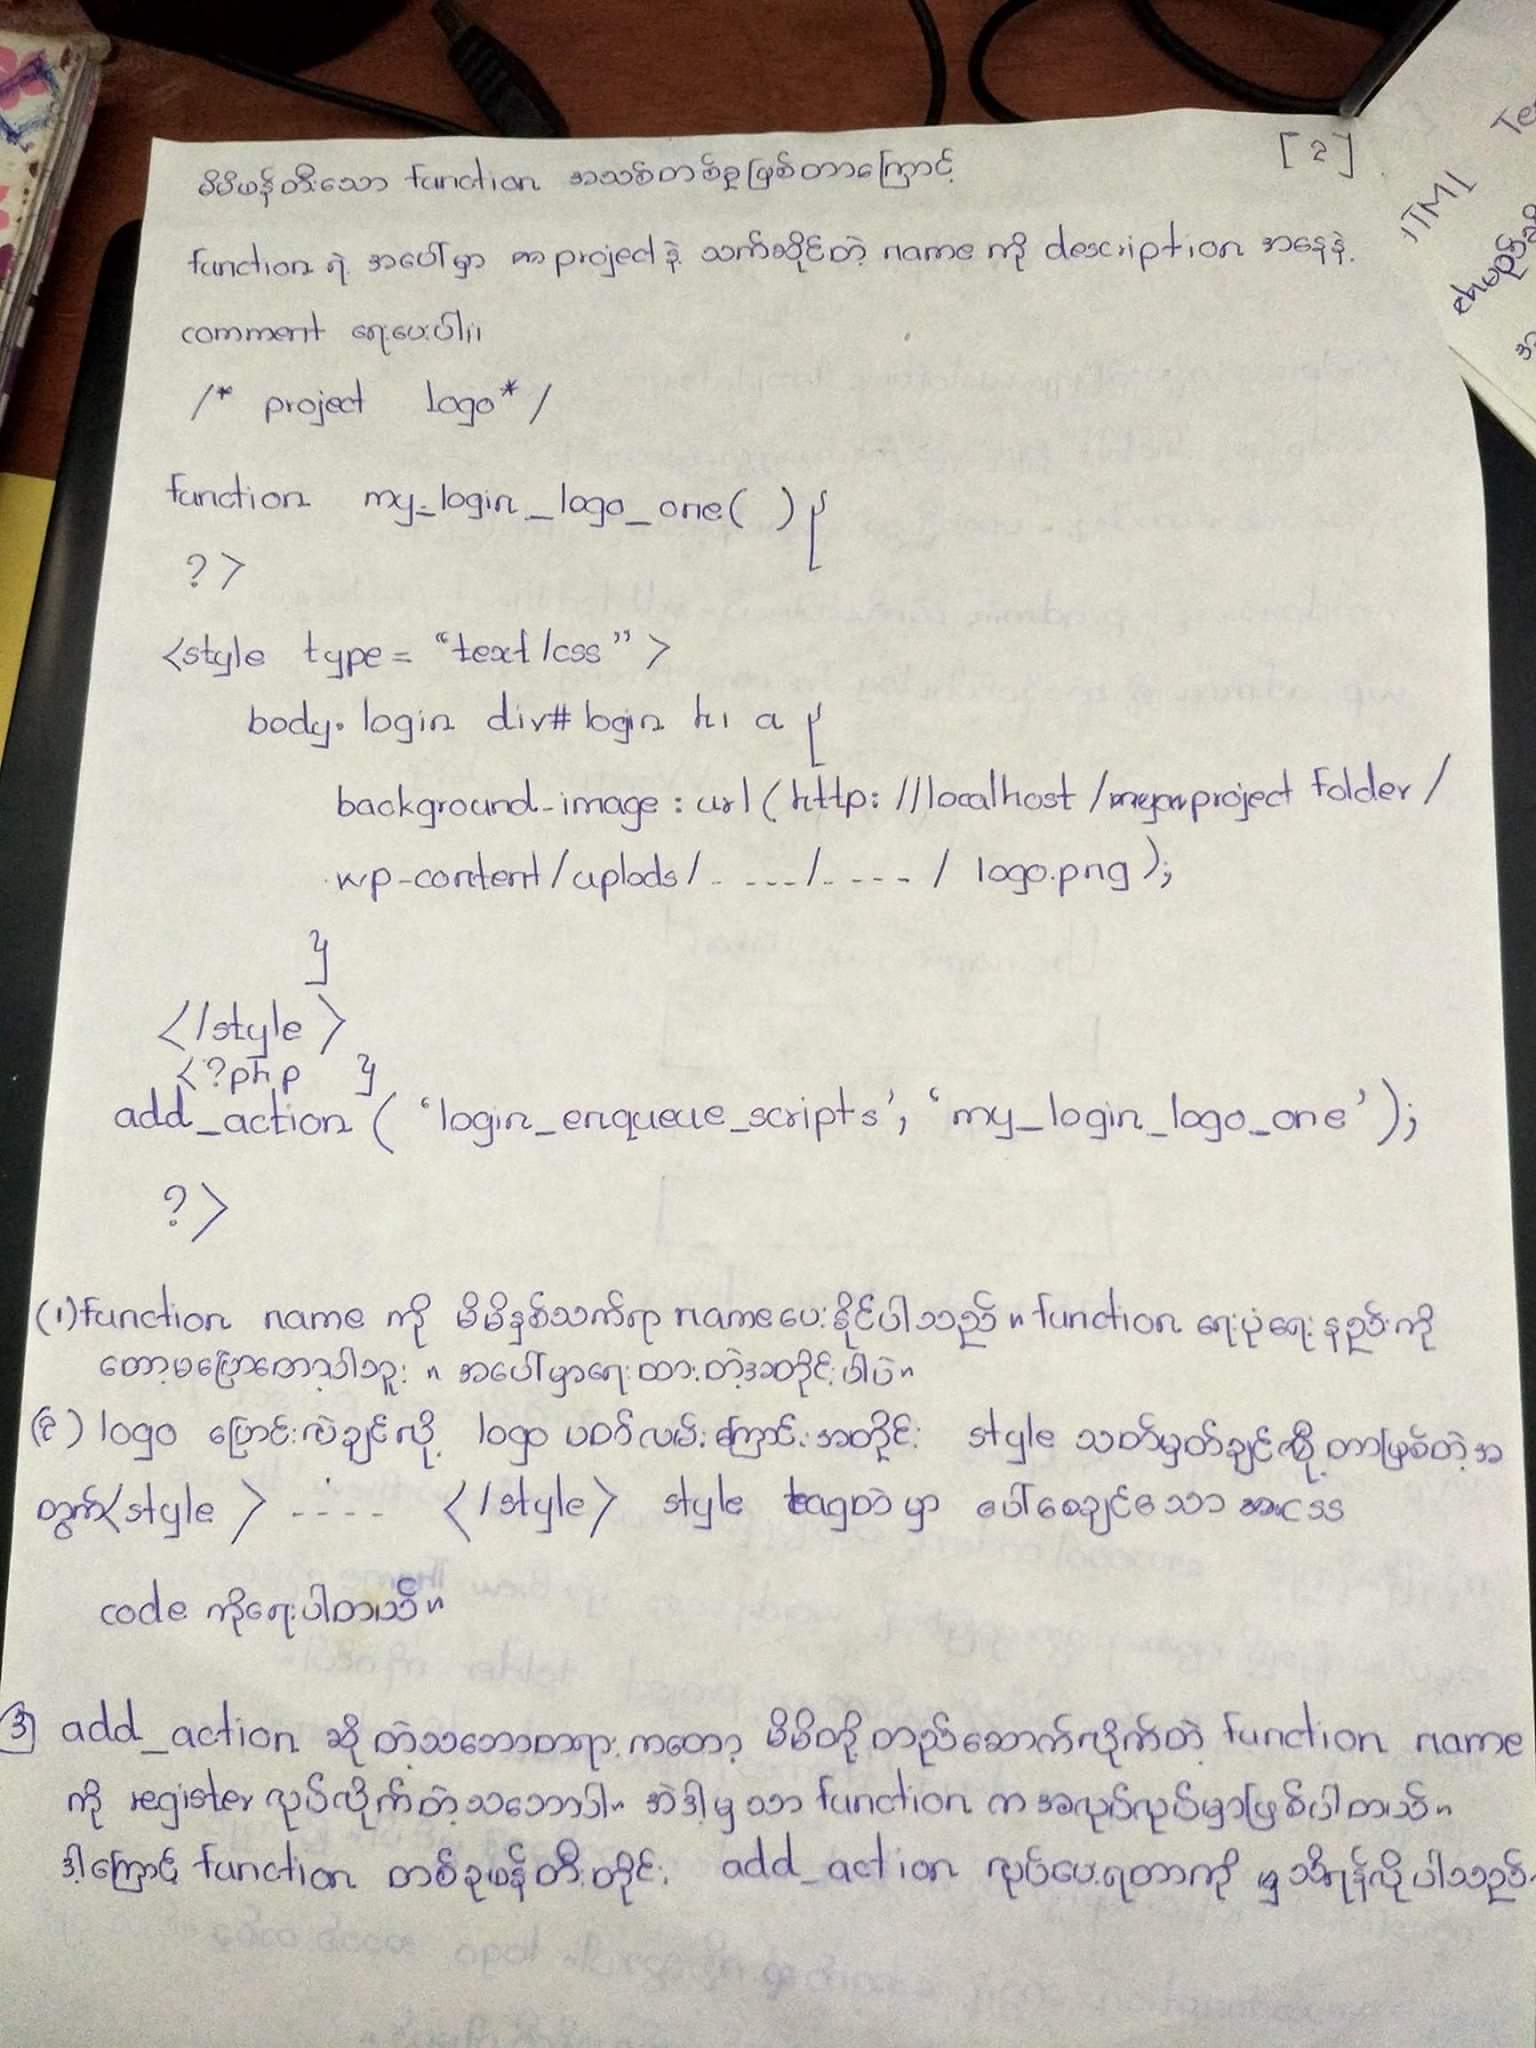 [၂]
မိမိဖန်တီးသော function အသစ်တစ်ခုဖြစ်တာကြောင့်
function ရဲ့ အပေါ်မှာ project နဲ့ သက်ဆိုင်တဲ့ name ကို description အနေနဲ့
comment ရေးပေးပါ။
/* project logo*/
function my_login_logo_one( ) {
?>
<style type= “text/css”>
body. login div# login h1 a {
background-image : url ( http: //localhost / project folder /
wp-content/uplods/- ---/- --- - / logo.png );
}
</style >
<?php }
add_action ( ‘login_enqueue_scripts’, ‘my_login_logo_one’);
?>
(၁) function name ကို မိမိနှစ်သက်ရာ name ပေးနိုင်ပါသည်။ function ရေးပုံရေးနည်းကို
တော့မပြောတော့ပါဘူး။ အပေါ်မှာရေးထားတဲ့အတိုင်းပါပဲ။
(၂) logo ပြောင်းလဲချင်လို့ logo ပတ်လမ်းကြောင်းအတိုင်း style သတ်မှတ်ချင်လို့တာဖြစ်တဲ့အ
တွက် <style > - - - - </style> style tag ထဲမှာ ပေါ်စေချင်သော css
code ကိုရေးပါတယ်။
၃) add_action ဆိုတဲ့သဘောတရားကတော့ မိမိတို့ တည်ဆောက်လိုက်တဲ့ function name
ကို register လုပ်လိုက်တဲ့သဘောပါ။ အဲဒါမှသာ function က အလုပ်လုပ်မှာဖြစ်ပါတယ်။
ဒါ့ကြောင့် function တစ်ခုဖန်တီးတိုင်း add_action လုပ်ပေးရတာကို သိရန်လိုပါသည်
HTML